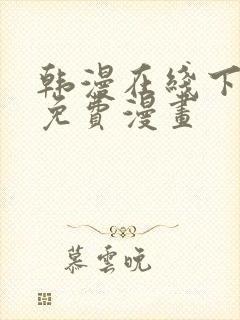 韩漫在线下
免費漫畫
慕雲晚